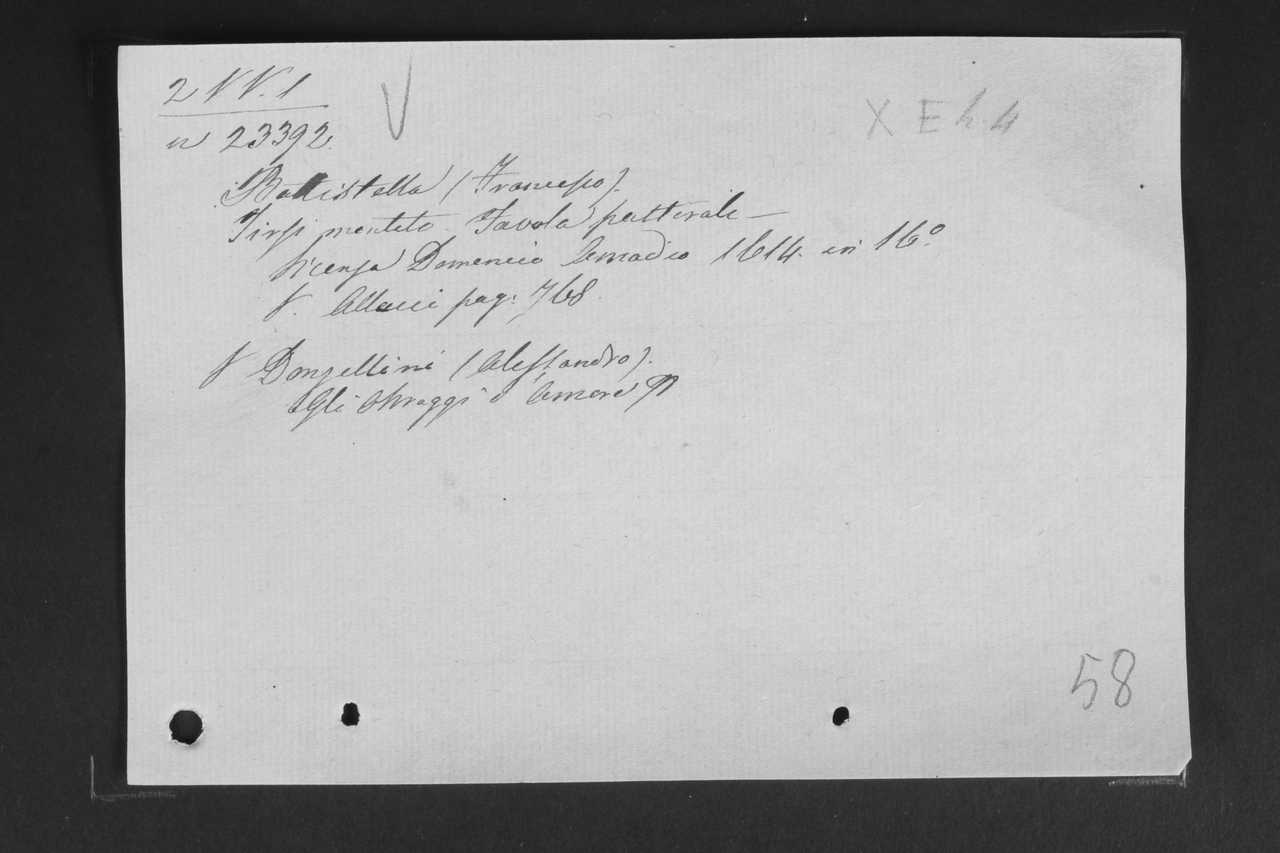 2 VV. 1
n 23392.
V
X E h. 4
Battistella (Francesco).
Tirsi mentito. Favola pastorale —
Vicenza Domenico Amadio 1614. in 16.º
V. Allacci pag: 768.
V Donzellini (Alessandro).
Gli Oltraggi d'Amore
58